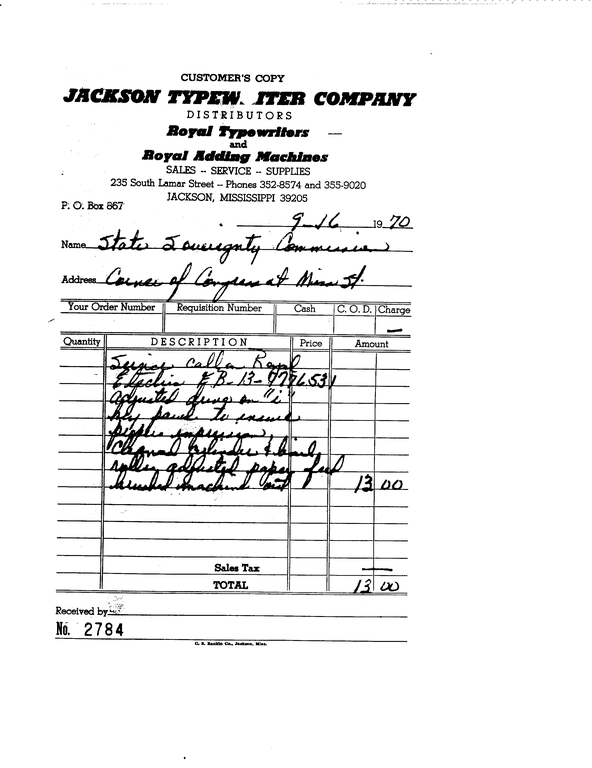 CUSTOMER'S COPY
JACKSON TYPEW. ITER COMPANY
DISTRIBUTORS
Royal Typewriters —
and
Royal Adding Machines
SALES -- SERVICE -- SUPPLIES
235 South Lamar Street -- Phones 352-8574 and 355-9020
JACKSON, MISSISSIPPI 39205
P. O. Box 867
9-16 1970
Name State Sovereignty Commission
Address Corner of Congress at Miss St.
Your Order Number Requisition Number Cash C. O. D. Charge
Quantity DESCRIPTION Price Amount
Service call on Royal
Electric EB-13-9776531
adjusted on "i"
key to
impression,
Cleaned cylinder &
roller adjusted paper feed
brushed machine out 13 00
Sales Tax —
TOTAL 13 00
Received by
No. 2784
C. S. Rankin Co., Jackson, Miss.